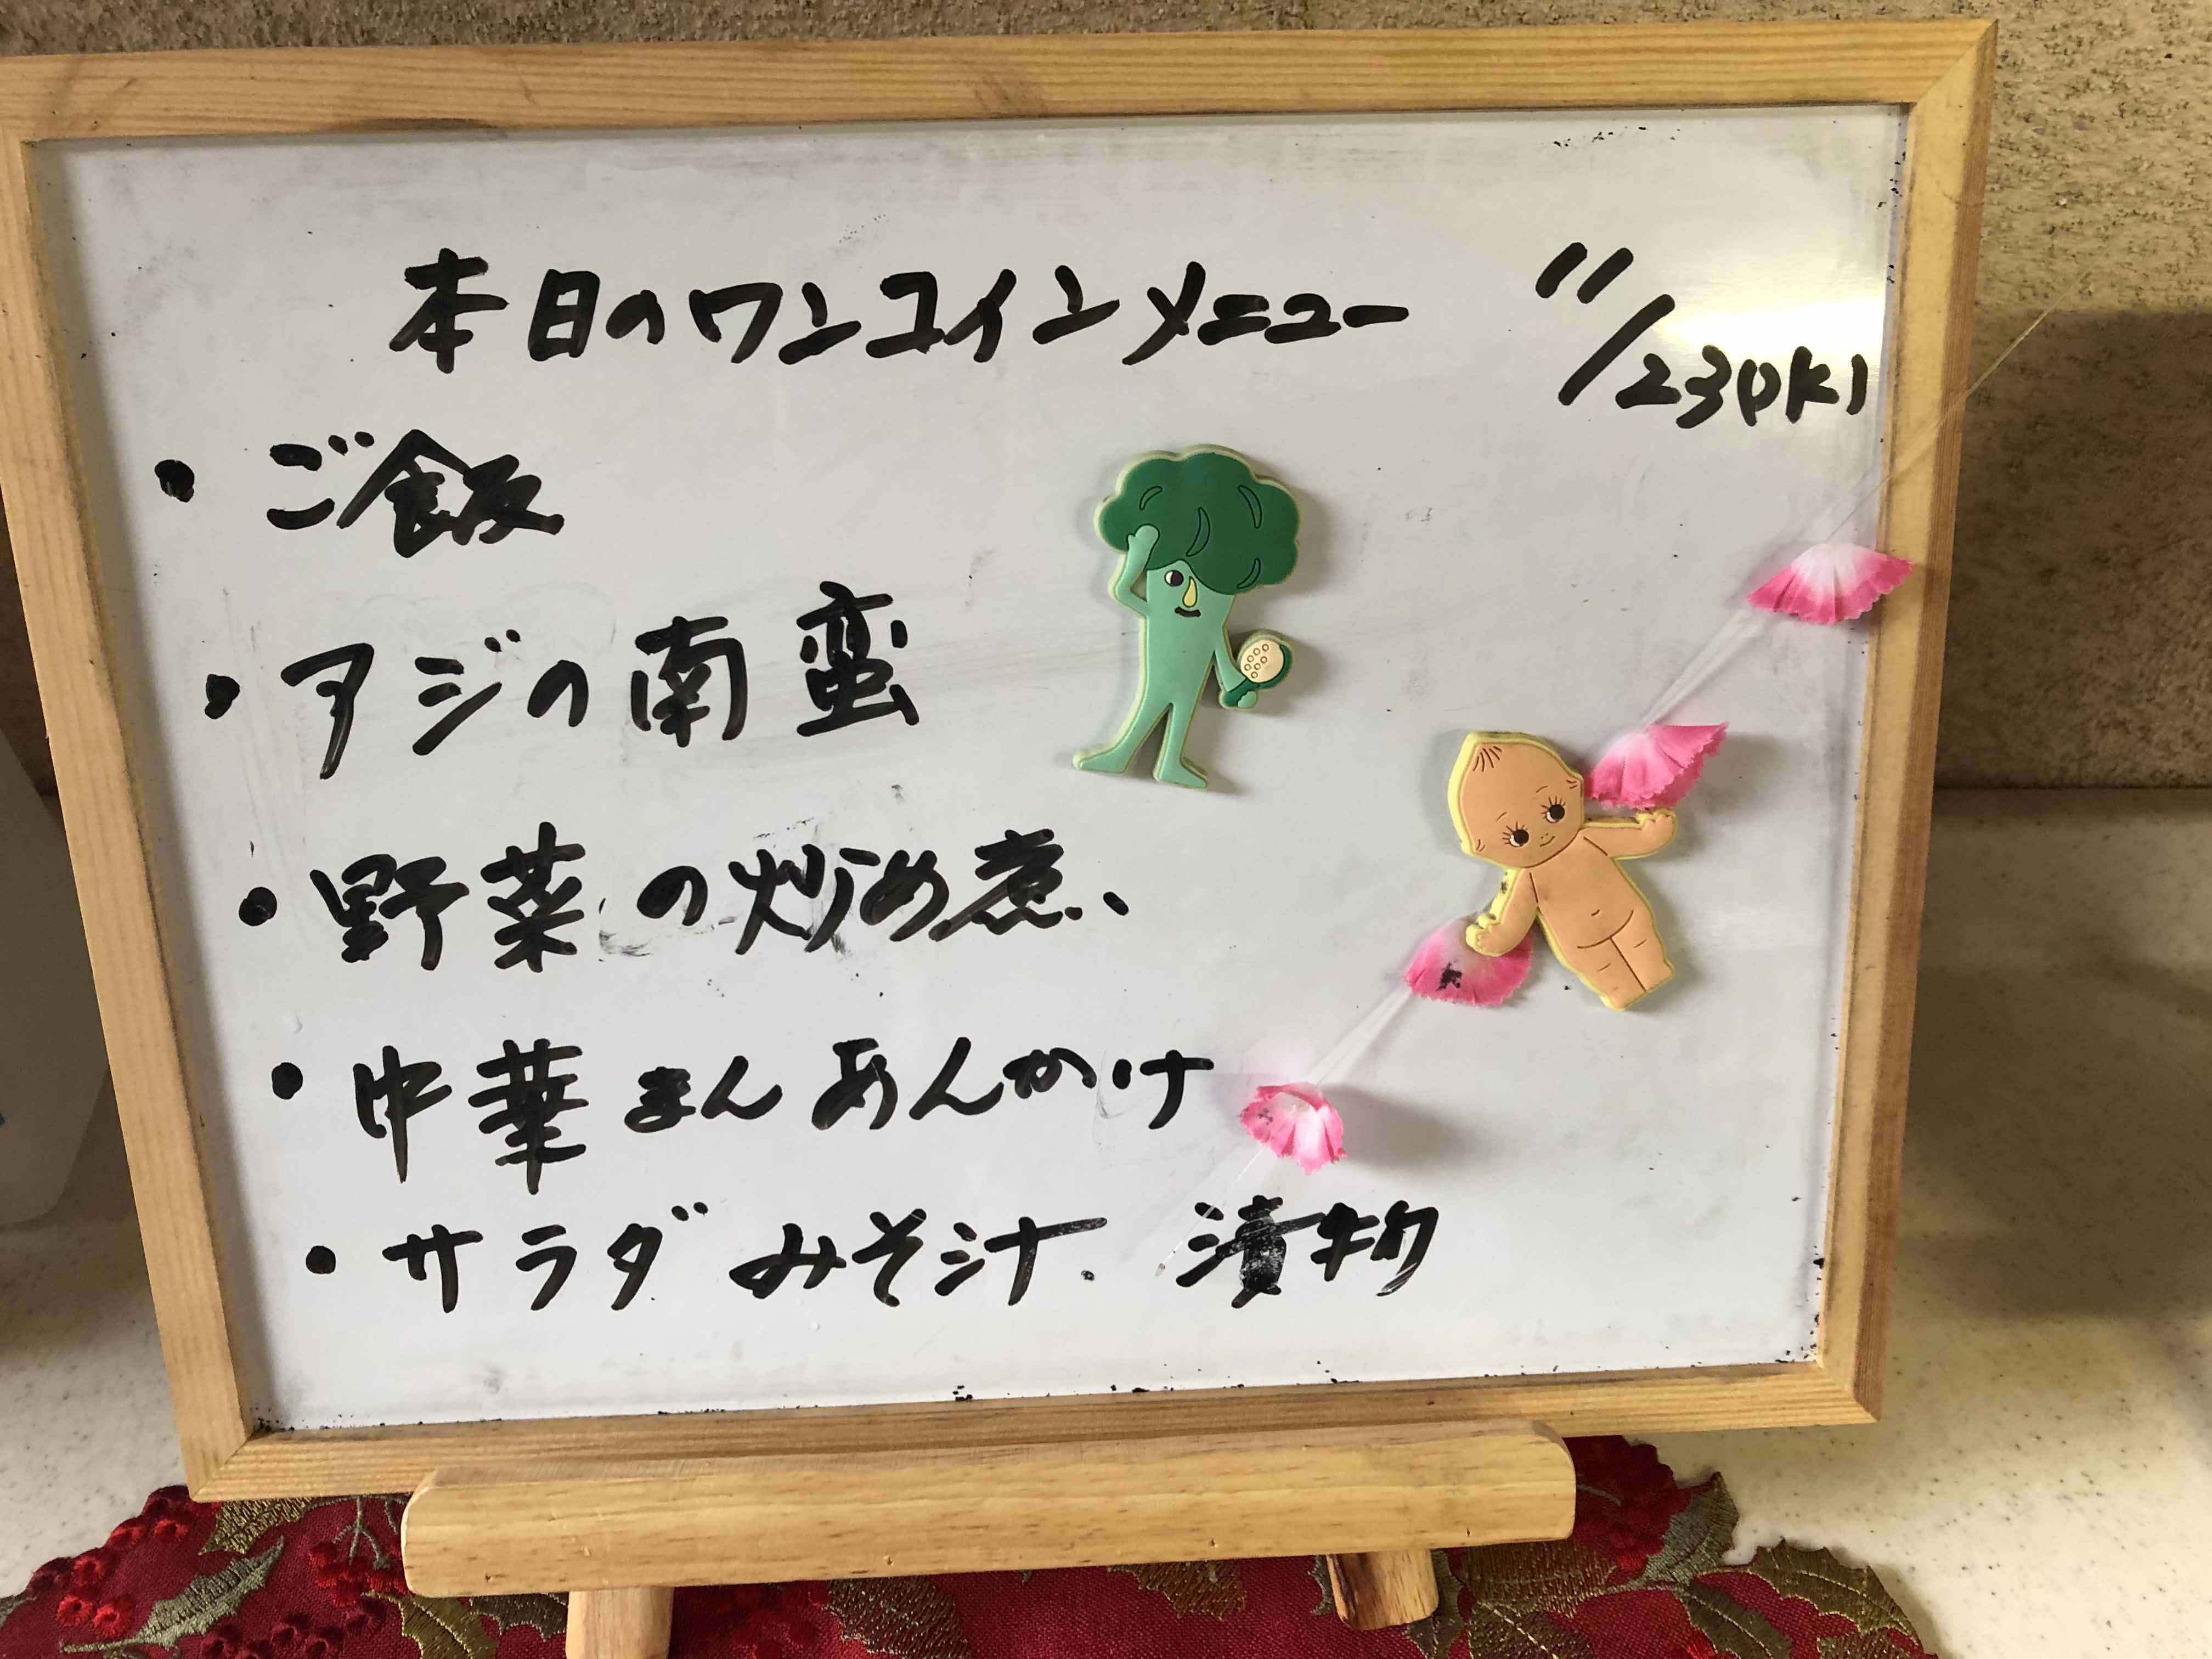 本日のワンコインメニュー 11/23(水)
・ご飯
・アジの南蛮
・野菜の炒め煮、
・中華まんあんかけ
・サラダ みそ汁. 漬物